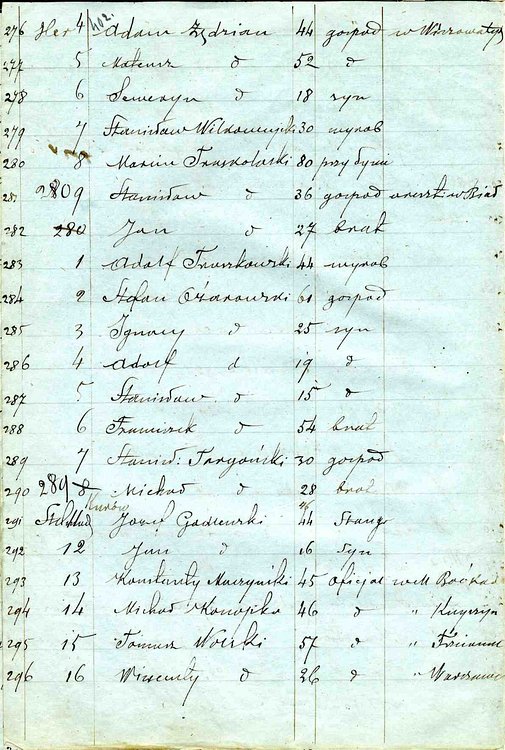 276 Her 4 402 Adam Zędzian 44 gospod w
277 5 Mateusz d 52 d
278 6 Seweryn d 18 syn
279 7 Stanisław 30 wyrob
280 8 Marcin Truskolaski 80 przy synu
281 2809 Stanisław d 36 gospod areszt w Biał
282 280 Jan d 27 brat
283 1 Adolf Truszkowski 44 wyrob
284 2 Stefan Ożarowski 61 gospod
285 3 Ignacy d 25 syn
286 4 Adolf d 19 d
287 5 Stanisław d 15 d
288 6 Franciszek d 54 brat
289 7 Stanisł: Targoński 30 gospod
290 289 8 Michał d 28 brat
291 Józef Godlewski 44 Stange
292 12 Jan d 16 syn
293 13 Konstanty Moczyński 45 Oficjal
294 14 Michał Konopka 46 d " Knyszyn
295 15 Tomasz Wolski 57 d "
296 16 Wincenty d 26 d " Warszawa